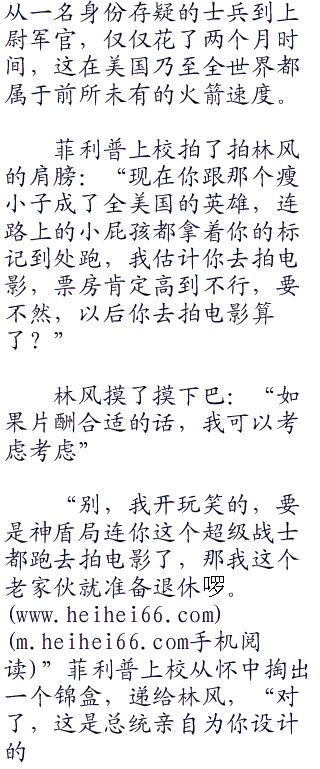 从一名身份存疑的士兵到上
尉军官，仅仅花了两个月时
间，这在美国乃至全世界都
属于前所未有的火箭速度。
菲利普上校拍了拍林风
的肩膀：“现在你跟那个瘦
小子成了全美国的英雄，连
路上的小屁孩都拿着你的标
记到处跑，我估计你去拍电
影，票房肯定高到不行，要
不然，以后你去拍电影算
了？”
林风摸了摸下巴：“如
果片酬合适的话，我可以考
虑考虑”
“别，我开玩笑的，要
是神盾局连你这个超级战士
都跑去拍电影了，那我这个
老家伙就准备退休啰。
(www.heihei66.com)
(m.heihei66.com手机阅
读)”菲利普上校从怀中掏出
一个锦盒，递给林风，“对
了，这是总统亲自为你设计
的